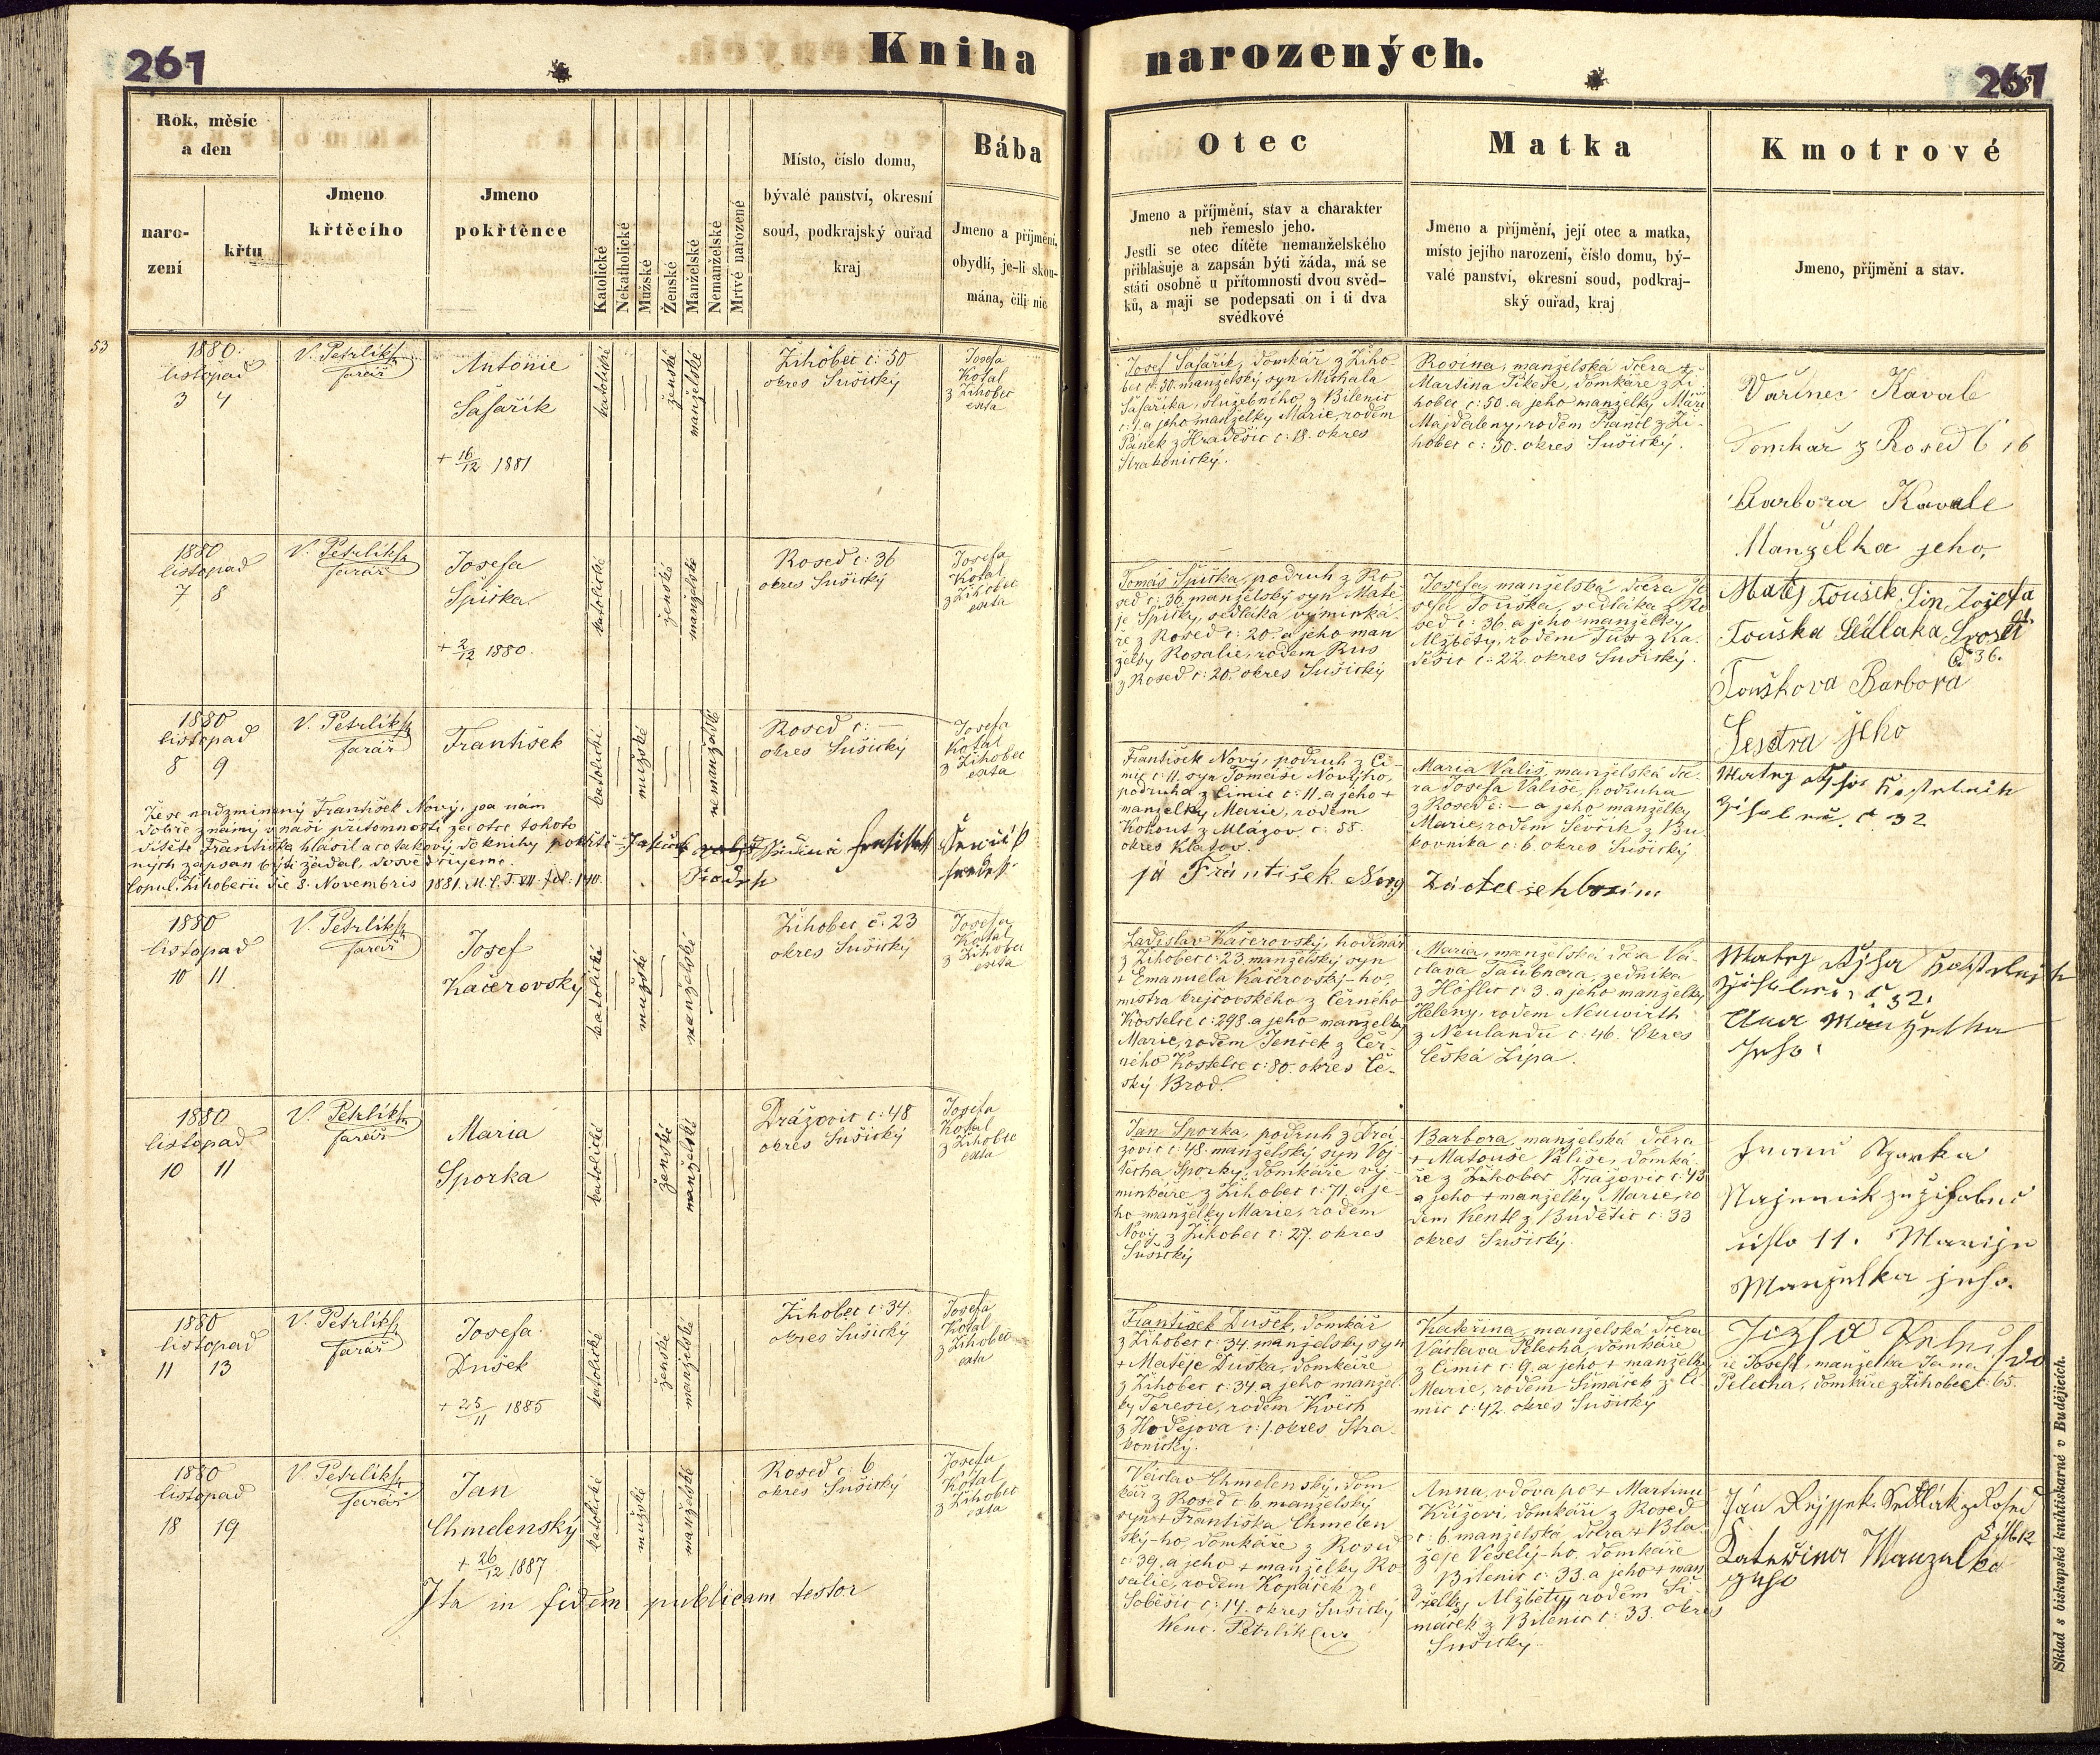 261
Kniha narozených.
261
Rok, měsíc
a den
naro-
zení
křtu
Jmeno
křtěcího
Jmeno
pokřtěnce
Katolické
Nekatholické
Mužské
Ženské
Manželské
Nemanželské
Mrtvé narozené
Místo, číslo domu,
bývalé panství, okresní
soud, podkrajský ouřad
kraj
Bába
Jmeno a příjmení,
obydlí, je-li skou-
mána, čili nic
Otec
Jmeno a příjmění, stav a charakter
neb řemeslo jeho.
Jestli se otec dítěte nemanželského
přihlašuje a zapsán býti žáda, má se
státi osobně u přítomnosti dvou svěd-
ků, a mají se podepsati on i ti dva
svědkové
Matka
Jmeno a příjmění, její otec a matka,
místo jejího narození, číslo domu, bý-
valé panství, okresní soud, podkraj-
ský ouřad, kraj
Kmotrové
Jmeno, příjmění a stav.
53
1880.
listopad
3 4
V. Petrlík
farář
Antonie
Šafařík
+ 16/12 1881
katolické
ženské
manželské
Žihobec č: 50
okres Sušický
Josefa
Kotal
z Žihobec
exta
Josef Šafařík, domkář z Žiho-
bec č: 50. manželský syn Michala
Šafaříka, služebního z Bilenic
č: 1. a jeho manželky Marie, rodem
Panek z Hradešic č: 18. okres
Strakonický.
Rosina, manželská dcera +
Martina Pikeše, domkáře z Ži-
hobec č: 50. a jeho manželky Maří
Majdaleny, rodem Prantl z Ži-
hobec č: 30. okres Sušický.
Vařinec Kavale
Domkař z Rosed č 16
Barbora Kavale
Manželka jeho
1880
listopad
7 8
V. Petrlík
farář
Josefa
Špička
+ 2/12 1880.
katolické
ženské
manželské
Rosed č: 36
okres Sušický
Josefa
Kotal
z Žihobec
exta
Tomáš Špička, podruh z Ro-
sed č: 36. manželský syn Matě-
je Špičky, sedláka, výminká-
ře z Rosed č: 20. a jeho man-
želky Rosalie, rodem Rus
z Rosed č: 20. okres Sušický
Josefa, manželská dcera Jo-
sefa Touška, sedláka z Ro-
sed č: 36. a jeho manželky
Alžběty, rodem Tůs z Ka-
dešic č: 22. okres Sušický.
Matěj Toušek, Sin Jozefa
Touška Sedlaka
č 36.
Touškova Barbora
Sestra jeho
1880
listopad
8 9
V. Petrlík
farář
František
katolické
mužské
nemanželské
Rosed č: —
okres Sušický
Josefa
Kotal
z Žihobec
exta
František Nový, podruh z Či-
mic č: 11. syn Tomáše Nového,
podruha z Čimic č: 11. a jeho +
manželky Marie, rodem
Kohout z Mlázov č: 88.
okres Klatov.
já František Nový Za otce se hlasim
Maria Vališ, manželská dce-
ra Josefa Vališe, podruha
z Rosed č: — a jeho manželky
Marie, rodem Ševčík z Bu-
kovníka č: 6. okres Sušický.
č 32
Že se nadzmíněný František Nový, jsa nám
dobře známý v naší přítomnosti ze otce tohoto
dítěte Františka hlásil a co takový do knihy pokřtě-
ných zapsán býti žádal, dosvědčujeme.
Copul. Žihobecii die 8. Novembris 1881. M. C. T. VII. fol: 140.
1880
listopad
10 11
V. Petrlík
farář
Josef
Kačerovský
katolické
mužské
manželské
Žihobec č: 23
okres Sušický
Josefa
Kotal
z Žihobec
exta
Ladislav Kačerovský, hodinář
z Žihobec č: 23. manželský syn
+ Emanuela Kačerovský-ho,
mistra krejčovského z Černého
Kostelce č: 298. a jeho manželky
Marie, rodem Jeníček z Čer-
ného Kostelce č: 80. okres Če-
ský Brod.
Maria, manželská dcera Vá-
clava Taubnera, zedníka
z Höflic č: 3. a jeho manželky
Heleny, rodem Neuwirth
z Neulandu č: 46. Okres
Česká Lípa.
č 32.
Ana Manželka
Jeho
1880
listopad
10 11
V. Petrlík
farář
Maria
Sporka
katolické
ženské
manželské
Dražovic č: 48
okres Sušický
Josefa
Kotal
z Žihobec
exta
Jan Sporka, podruh z Dra-
žovic č: 48. manželský syn Voj-
těcha Sporky, domkáře vý-
minkáře z Žihobec č: 71. a je-
ho manželky Marie, rodem
Nový z Žihobec č: 27. okres
Sušický
Barbora, manželská dcera
+ Matouše Vališe, domká-
ře z Žihobec Dražovic č: 43
a jeho + manželky Marie, ro-
dem Kentl z Budětic č: 33
okres Sušický.
Sporka
číslo 11. Marije
Manželka jeho.
1880
listopad
11 13
V. Petrlík
farář
Josefa
Dušek
+ 25/11 1885
katolické
ženské
manželské
Žihobec č: 34.
okres Sušický
Josefa
Kotal
z Žihobec
exta
František Dušek, domkář
z Žihobec č: 34 manželský syn
+ Matěje Duška, domkáře
z Žihobec č: 34. a jeho manžel-
ky Teresie, rodem Květh
z Hodějova č: 1. okres Stra-
konický.
Kateřina, manželská dcera
Václava Pelecha, domkáře
z Čimic č: 9. a jeho + manželky
Marie, rodem Šimáček z Či-
mic č: 42. okres Sušický
Jozefa
Josefa, manželka Jana
Pelecha, domkáře z Žihobec č: 65.
1880
listopad
18 19
V. Petrlík
farář
Jan
Chmelenský
+ 26/12 1887
katolické
mužské
manželské
Rosed č: 6
okres Sušický
Josefa
Kotal
z Žihobec
exta
Václav Chmelenský, dom-
kář z Rosed č: 6. manželský
syn + Františka Chmelen-
ský-ho, domkáře z Rosed
č: 39. a jeho + manželky Ro-
salie, rodem Kopáček ze
Soběšic č: 14. okres Sušický
Anna, vdova po + Martinu
Křížovi, domkáři z Rosed
č: 6. manželská dcera + Bla-
žeje Veselý-ho, domkáře
z Bilenic č: 33. a jeho + man-
želky Alžběty, rodem Ši-
máček z Bilenic č: 33. okres
Sušický.
Ján Rejssek Sedlák z Rosed
Kateřina Manzelka
Ita in fidem publicam testor
Wenc. Petrlík
Sklad s biskupské knihtiskárně v Budějicích.